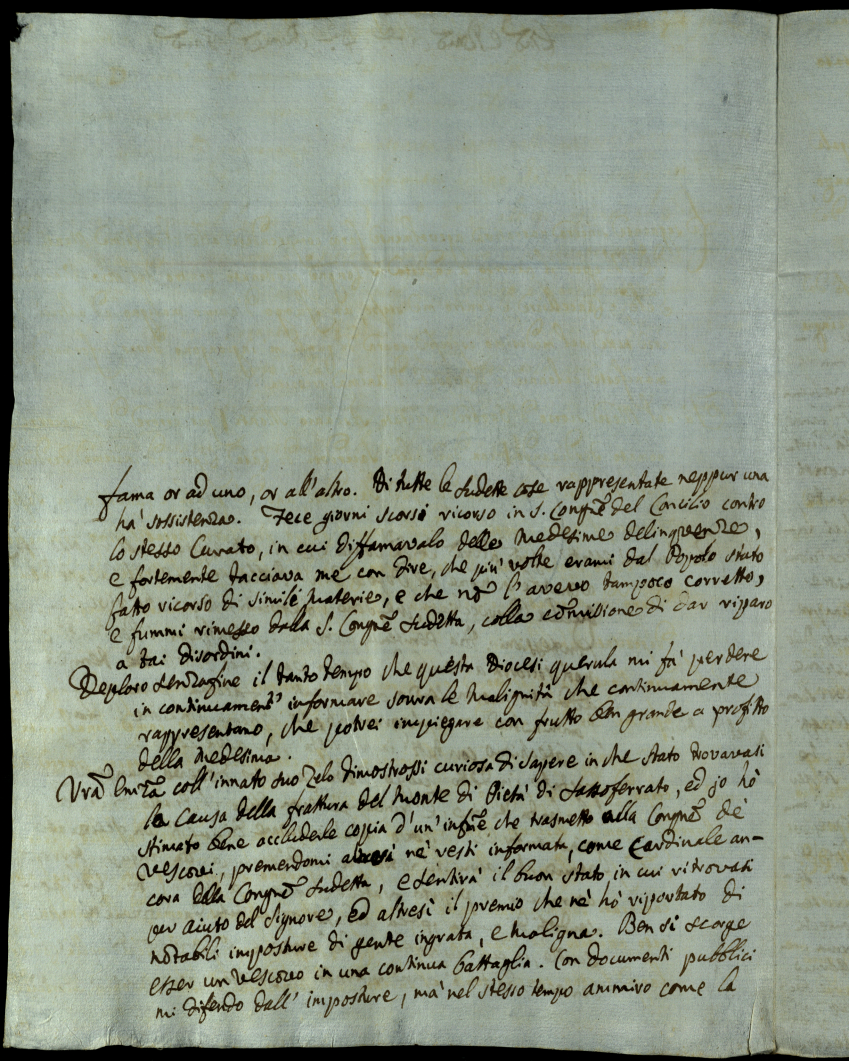 fama or ad uno, or all'altro. Di tutte le sudette cose rappresentate neppur una
ha' sossistenza. Fece giorni scorsi ricorso in S. Congne del Concilio contro
lo stesso Curato, in cui diffamavalo delle medesime delinquenze,
e fortemente tacciava me con dire, che più volte erami dal Popolo stato
fatto ricorso di simile materie, e che nō l'avevo tampoco corretto,
e fummi rimesso dalla S. Congne sudetta, colla cōmissione di dar riparo
a tai disordini.
Deploro senzafine il tanto tempo che questa Diocesi querula mi fà perdere
in continuamente informare sovra le malignità che continuamente
rappresentano, che potrei impiegare con frutto ben grande a profitto
della medesima.
Vra Emza coll'innato suo zelo dimostrossi curiosa di sapere in che stato trovavasi
la causa della frattura del Monte di Pietà di Sassoferrato, ed io hò
stimato bene accluderle copia d'un'infne che trasmetto alla Congne de'
Vescovi, premendomi ne resti informata, come Cardinale an-
cora della Congne sudetta, e sentirà il buon stato in cui ritrovasi
per aiuto del Signore, ed altresì il premio che ne hò riportato di
notabili imposture di gente ingrata, e maligna. Ben si scorge
esser un Vescovo in una continua battaglia. Con documenti pubblici
mi difendo dall'imposture, mà nel stesso tempo ammiro come la